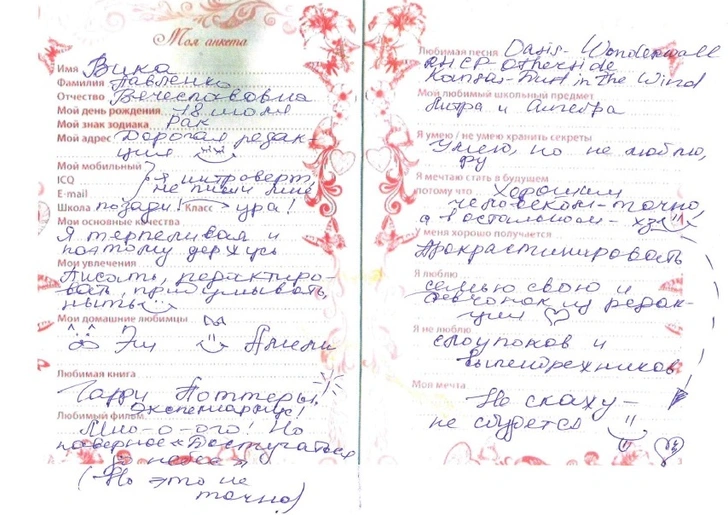 Моя анкета
Имя Вика
Фамилия Павленко
Отчество Вячеславовна
Мой день рождения 18 июля
Мой знак зодиака Рак
Мой адрес Дорогая редак-
ция
Мой мобильный
ICQ Я интроверт,
E-mail не пиши мне
Школа позади! Класс - ура!
Мои основные качества
Я терпеливая и
поэтому держусь
Мои увлечения
Писать, редактиро-
вать, придумывать,
ныть
Мои домашние любимцы
Эш Амели
Любимая книга
Гарри Поттеры,
экспелиармус!
Любимый фильм
Мно-о-ого! Но
наверное «Достучаться
до небес»
(Но это не
точно)
Любимая песня Oasis - Wonderwall
RHCP - Otherside
Kansas - Dust in the Wind
Мой любимый школьный предмет
Литра и Алгебра
Я умею / не умею хранить секреты
Умею, но не люблю,
фу
Я мечтаю стать в будущем
потому что Хорошим
человеком - точно,
а в остальном - хз
У меня хорошо получается
Прокрастинировать
Я люблю
семью свою и
девчонок из редак-
ции
Я не люблю
глоупоков и
выпендрежников
Моя мечта
Не скажу -
не сбудется